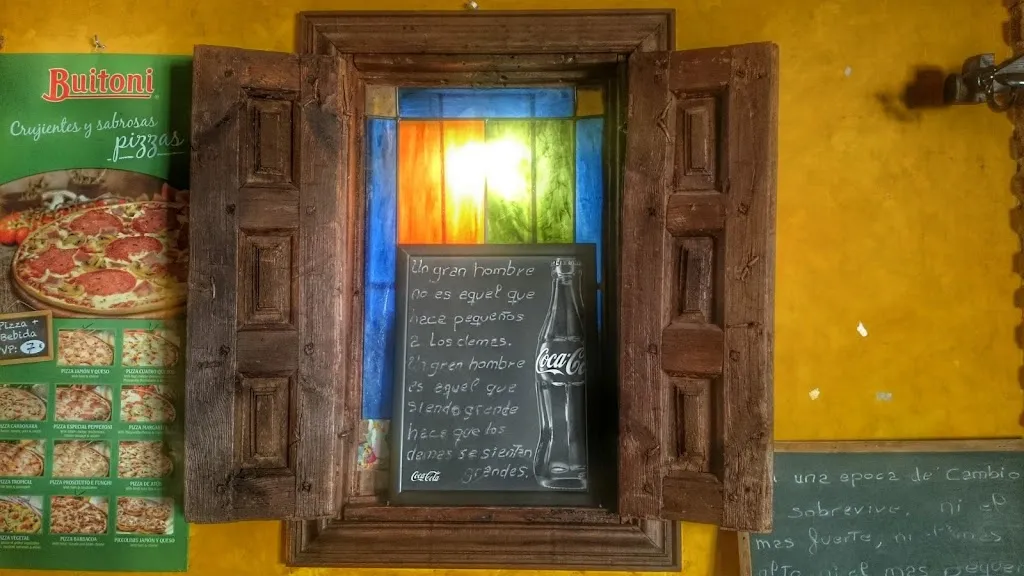 Buitoni
Crujientes y sabrosas
pizzas
Pizza +
Bebida
VP: 7
PIZZA JAMÓN Y QUESO
PIZZA CARBONARA
PIZZA ESPECIAL PEPPERONI
PIZZA TROPICAL
PIZZA PROSCIUTTO E FUNGHI
PIZZA DE ATÚN
PIZZA VEGETAL
PIZZA BARBACOA
PICCOLINIS JAMÓN Y QUESO
Un gran hombre
no es aquel que
hace pequeños
a los demas.
Un gran hombre
es aquel que
siendo grande
hace que los
demas se sientan
grandes.
Coca-Cola
Coca-Co
una epoca de Cambio
sobrevive, ni el
mas fuerte, ni el mas
alto, ni el mas peque